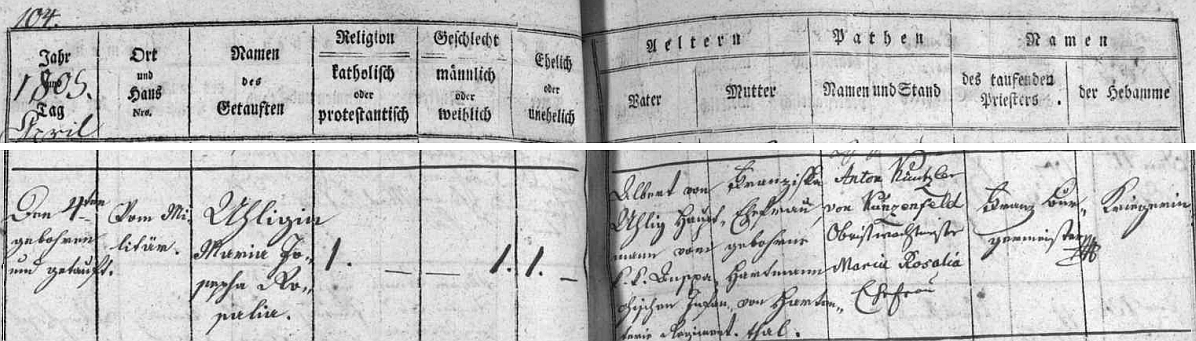 104.
Jahr
1805.
Tag
April
Ort
und
Haus
Nro.
Namen
des
Getauften
Religion
katholisch
oder
protestantisch
Geschlecht
männlich
oder
weiblich
Ehelich
oder
unehelich
Aeltern
Vater
Mutter
Pathen
Namen und Stand
Namen
des taufenden
Priesters.
der Hebamme
Den 4ten
gebohren
und getauft.
Vom Mi-
litär.
Uhligin
Maria Jo-
sepha Ro-
salia.
1.
1.
1.
Albert von
Uhlig Haupt-
mann vom
k. k.
Regiment.
Franziska
Ehefrau
gebohrne
Hartmann
von Harten-
thal.
Anton
von
Obristwachtmeister
Maria Rosalia
Ehefrau
Franz Bur-
germeister